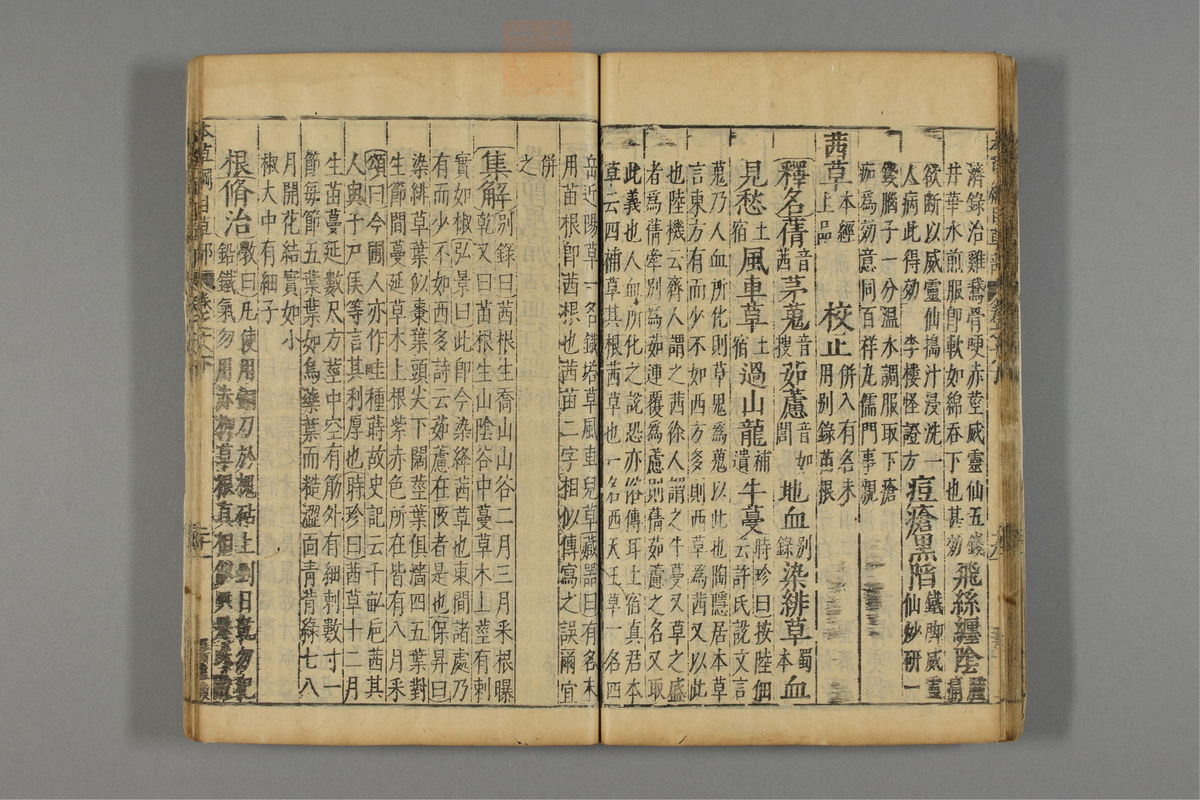 濟錄治雞鵞骨哽赤莖威靈仙五錢
井華水煎服卽軟如綿吞下也甚効
飛絲纏陰
欲斷以威靈仙搗汁浸洗一
人病此得効 李樓怪證方
痘瘡黑陷
鐵脚威靈
仙炒研一
錢腦子一分温水調服取下瘡
痂爲効意同百祥丸儒門事親
茜草
本經
上品
校正
併入有名未
用别錄苗根
釋名
蒨
音
茜
茅蒐
音
搜
茹藘
音如
閭
地血
别
錄
染緋草
蜀
本
血
見愁
土
宿
風車草
土
宿
過山龍
補
遺
牛蔓
時珍曰按陸佃
云許氏說文言
蒐乃人血所化則草鬼爲蒐以此也陶隱居本草
言東方有而少不如西方多則西草爲茜又以此
也陸機云齊人謂之茜徐人謂之牛蔓又草之盛
者爲蒨牽引爲茹連覆爲藘則蒨茹藘之名又取
此義也人血所化之說恐亦俗傳耳土宿真君本
草云四補草其根茜草也一名西天王草一名四
岳近陽草一名鐵塔草風車兒草藏器曰有名未
用苗根卽茜根也茜苗二字相似傳寫之誤爾宜
併
之
集解
别錄曰茜根生喬山山谷二月三月采根曝
乾又曰苗根生山陰谷中蔓草木上莖有刺
實如椒弘景曰此卽今染絳茜草也東間諸處乃
有而少不如西多詩云茹藘在阪者是也保昇曰
染緋草葉似棗葉頭尖下闊莖葉俱澁四五葉對
生節間蔓延草木上根紫赤色所在皆有八月采
頌曰今圃人亦作畦種蒔故史記云千畝巵茜其
人與千戶侯等言其利厚也時珍曰茜草十二月
生苗蔓延數尺方莖中空有筋外有細刺數寸一
節每節五葉葉如烏藥葉而糙澀面青背綠七八
月開花結實如小
椒大中有細子
根
脩治
斆曰凡使用銅刀於槐砧上剉日乾勿犯
鉛鐵氣勿用赤柳草根真相似